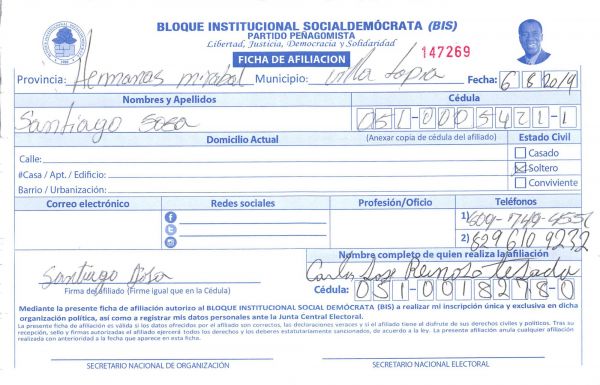 BLOQUE INSTITUCIONAL SOCIALDEMÓCRATA (BIS)
PARTIDO PEÑAGOMISTA
Libertad, Justicia, Democracia y Solidaridad
FICHA DE AFILIACION
147269
Provincia: Hermanas mirabal Municipio: villa tapia Fecha: 6 8 2019
Nombres y Apellidos Cédula
Santiago Sosa 051-0005421-1
Domicilio Actual (Anexar copia de cédula del afiliado) Estado Civil
Calle: Casado
#Casa / Apt. / Edificio: Soltero
Barrio / Urbanización: Conviviente
Correo electrónico Redes sociales Profesión/Oficio Teléfonos
1)
2) 829 610 9232
Nombre completo de quien realiza la afiliación
Santiago Sosa Carlos Jose Reinoso tejada
Firma del afiliado (Firme igual que en la Cédula) Cédula: 051-0018278-0
Mediante la presente ficha de afiliación autorizo al BLOQUE INSTITUCIONAL SOCIAL DEMÓCRATA (BIS) a realizar mi inscripción única y exclusiva en dicha
organización política, así como a registrar mis datos personales ante la Junta Central Electoral.
La presente ficha de afiliación es válida si los datos ofrecidos por el afiliado son correctos, las declaraciones veraces y si el afiliado tiene el disfrute de sus derechos civiles y políticos. Tras su
recepción, sello y firmas autorizadas el afiliado ejercerá todos los derechos y los deberes estatutariamente sancionados, de acuerdo a la ley. La presente afiliación anula cualquier afiliación
realizada con anterioridad a la fecha que aparece en esta ficha.
SECRETARIO NACIONAL DE ORGANIZACIÓN SECRETARIO NACIONAL ELECTORAL